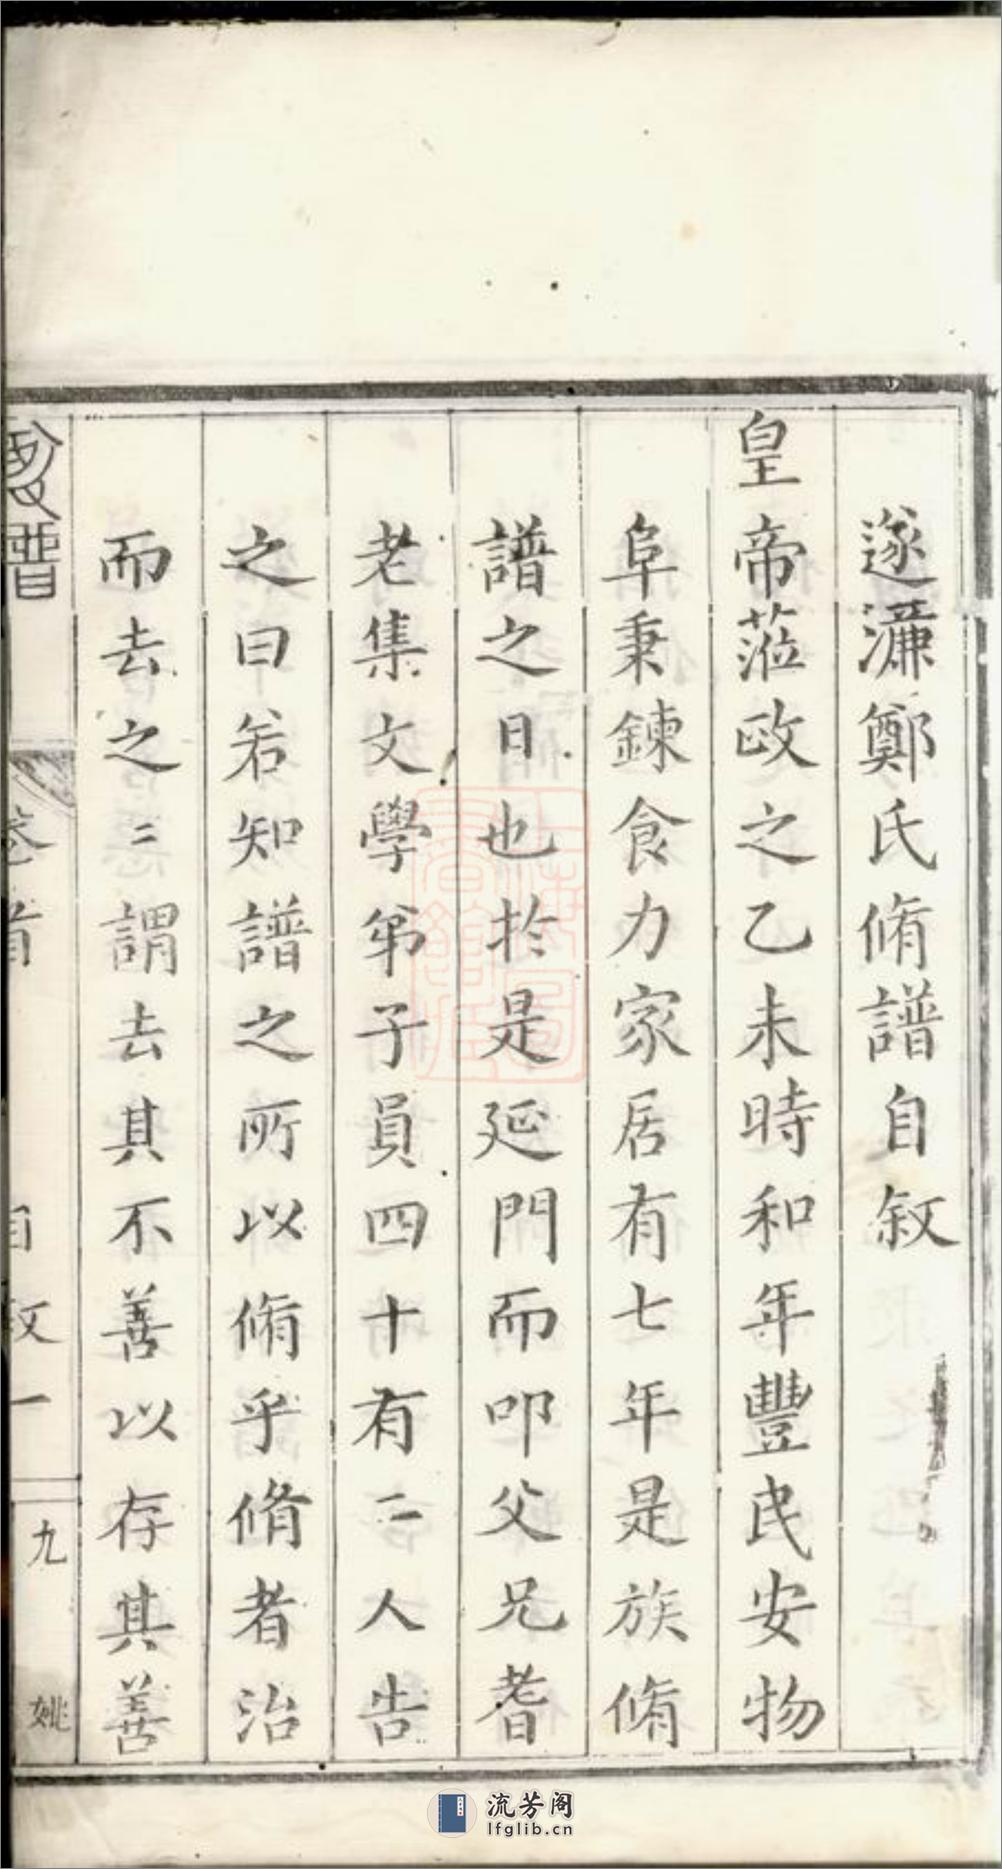 遂濂鄭氏脩譜自敘
皇帝蒞政之乙未時和年豐民安物
阜秉鍊食力家居有七年是族脩
譜之日也於是延門而叩父兄耆
老集文學弟子員四十有二人告
之曰若知譜之所以脩乎脩者治
而去之〻謂去其不善以存其善
卷首
自敘一
九
姚
流芳阁
lfglib.cn